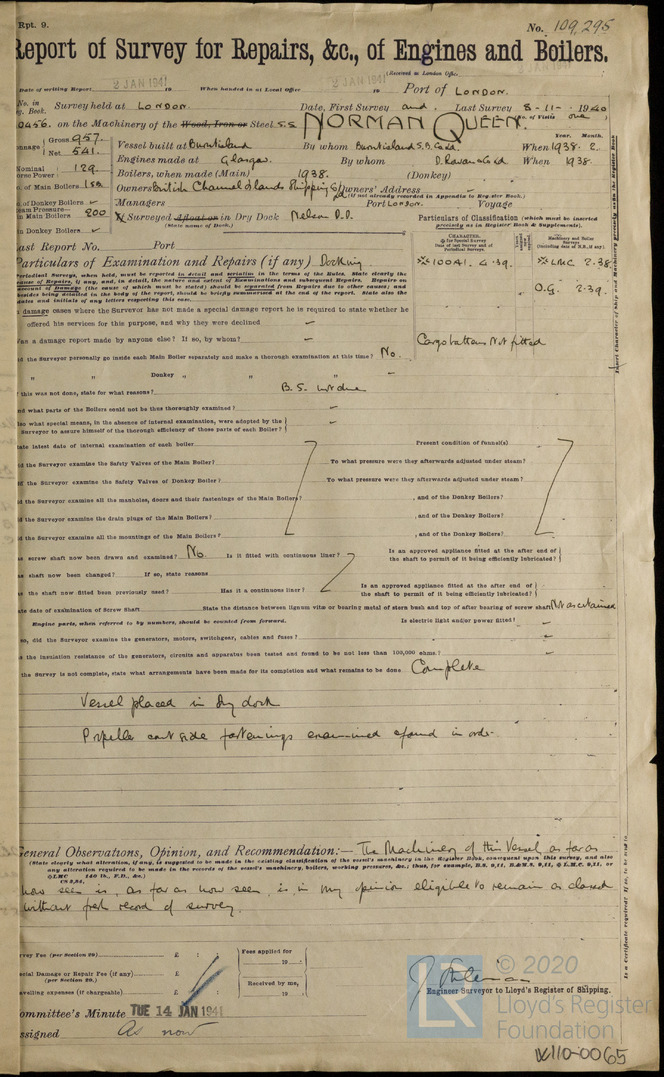 Rpt. 9.
No. 109,295
Report of Survey for Repairs, &c., of Engines and Boilers.
(Received at London Office
Date of writing Report 2 JAN 1941 19 When handed in at Local Office 2 JAN 1941 19 Port of LONDON.
No. in Survey held at LONDON. Date, First Survey and Last Survey 8-11- 1940
Reg. Book. No. of Visits one
0456. on the Machinery of the Wood, Iron or Steel S.S. NORMAN QUEEN.
Tonnage Gross 957. Net 541. Vessel built at Burntisland By whom Burntisland S.B. Co Ld. Year. Month. When 1938. 2.
Engines made at Glasgow. By whom D. Rowan & Co Ld When 1938.
Nominal Horse Power 129 Boilers, when (Made) (Main) 1938. (Donkey)
No. of Main Boilers Owners British Channel Islands Shipping Co Ld Owners' Address
(If not already recorded in Appendix to Register Book.)
No. of Donkey Boilers Managers Port LONDON. Voyage
Steam Pressure— in Main Boilers 200 If Surveyed afloat or in Dry Dock Nelson D.D.
(State name of Dock.)
in Donkey Boilers
Particulars of Classification (which must be inserted precisely as in Register Book & Supplements).
Last Report No. Port
CHARACTER. Machinery and Boiler Surveys
Particulars of Examination and Repairs (if any) Docking
100A1. 4.39. LMC 2.38
O.G. 2.39.
Periodical Surveys, when held, must be reported in detail and seriatim in the terms of the Rules. State clearly the
cause of Repairs, if any, and, in detail, the nature and extent of Examinations and subsequent Repairs. Repairs on
account of Damage (the cause of which must be stated) should be separated from Repairs due to other causes; and
besides being detailed in the body of the report, should be briefly summarised at the end of the report. State also the
dates and initials of any letters respecting this case.
In damage cases where the Surveyor has not made a special damage report he is required to state whether he
offered his services for this purpose, and why they were declined
Was a damage report made by anyone else? If so, by whom? Cargo battens Not fitted
Did the Surveyor personally go inside each Main Boiler separately and make a thorough examination at this time? No.
„ „ Donkey „
If this was not done, state for what reasons? B.S. not due
And what parts of the Boilers could not be thus thoroughly examined?
Also what special means, in the absence of internal examination, were adopted by the
Surveyor to assure himself of the thorough efficiency of those parts of each Boiler?
State latest date of internal examination of each boiler Present condition of funnel(s)
Did the Surveyor examine the Safety Valves of the Main Boiler? To what pressure were they afterwards adjusted under steam?
Did the Surveyor examine the Safety Valves of Donkey Boiler? To what pressure were they afterwards adjusted under steam?
Did the Surveyor examine all the manholes, doors and their fastenings of the Main Boilers? , and of the Donkey Boilers?
Did the Surveyor examine the drain plugs of the Main Boilers? , and of the Donkey Boilers?
Did the Surveyor examine all the mountings of the Main Boilers? , and of the Donkey Boilers?
Has screw shaft now been drawn and examined? No. Is it fitted with continuous liner? Is an approved appliance fitted at the after end of
the shaft to permit of it being efficiently lubricated?
Has shaft now been changed? If so, state reasons
Has the shaft now fitted been previously used? Has it a continuous liner? Is an approved appliance fitted at after end of
the shaft to permit of it being efficiently lubricated?
State date of examination of Screw Shaft State the distance between lignum vitæ or bearing metal of stern bush and top of after bearing of screw shaft Not ascertained
Engine parts, when referred to by numbers, should be counted from forward. Is electric light and/or power fitted?
If so, did the Surveyor examine the generators, motors, switchgear, cables and fuses?
Has the insulation resistance of the generators, circuits and apparatus been tested and found to be not less than 100,000 ohms?
If the Survey is not complete, state what arrangements have been made for its completion and what remains to be done Complete
Vessel placed in dry dock
Propeller and side fastenings examined & found in order.
General Observations, Opinion, and Recommendation:— The Machinery of this Vessel, as far as
(State clearly what alteration, if any, is suggested to be made in the existing classification of the vessel's machinery in the Register Book, consequent upon this survey, and also
any alteration required to be made in the records of the vessel's machinery, boilers, working pressures, &c.; thus, for example, B.S. 9,11, B&MS. 9,11, & L.M.C. 9,11, or
now seen is, as far as now seen, is in my opinion eligible to remain as classed
without fresh record of survey.
Survey Fee (per Section 29) £ : Fees applied for
19
Special Damage or Repair Fee (if any) £
(per Section 29.)
Received by me,
Travelling expenses (if chargeable) £ 19
Engineer Surveyor to Lloyd's Register of Shipping.
Committee's Minute TUE 14 JAN 1941
Assigned As now
© 2020
Lloyd's Register
Foundation
W110-0065